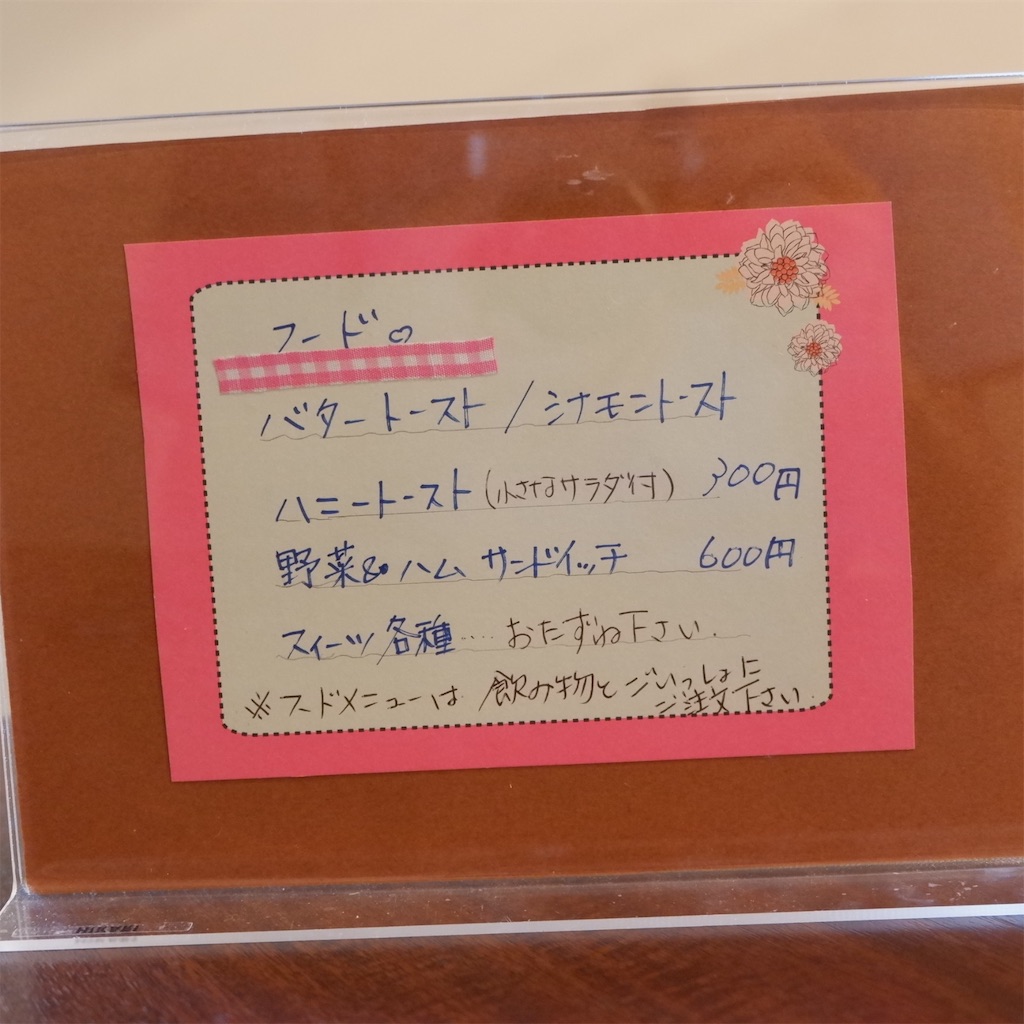 フード♡
バタートースト / シナモントースト
ハニートースト (小さなサラダ付) 300円
野菜&ハム サンドイッチ 600円
スイーツ各種‥‥おたずね下さい.
※フードメニューは 飲み物とごいっしょに
ご注文下さい.